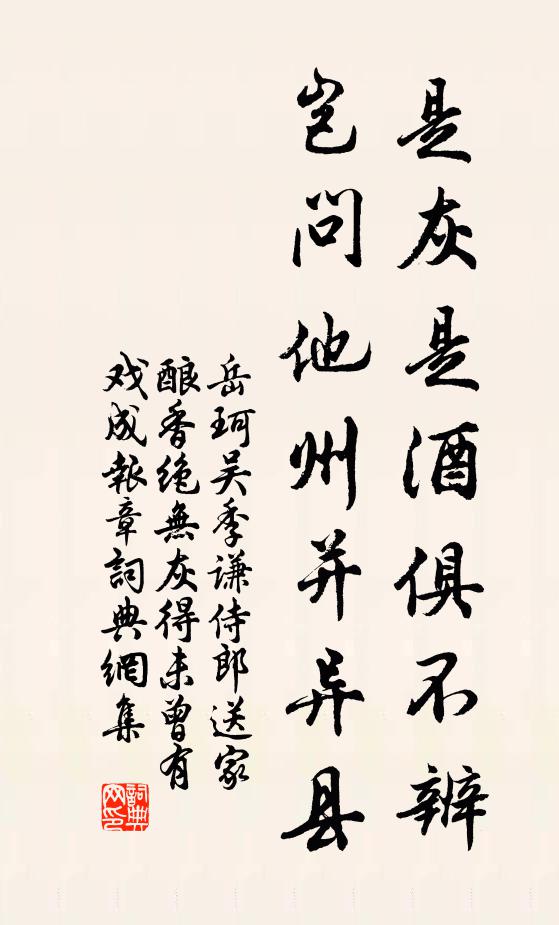 是灰是酒俱不辨
岂问他州并异县
岳珂吴季谦侍郎送家
酿香绝無灰得未曾有
戏成報章詞典網集
詞典網印